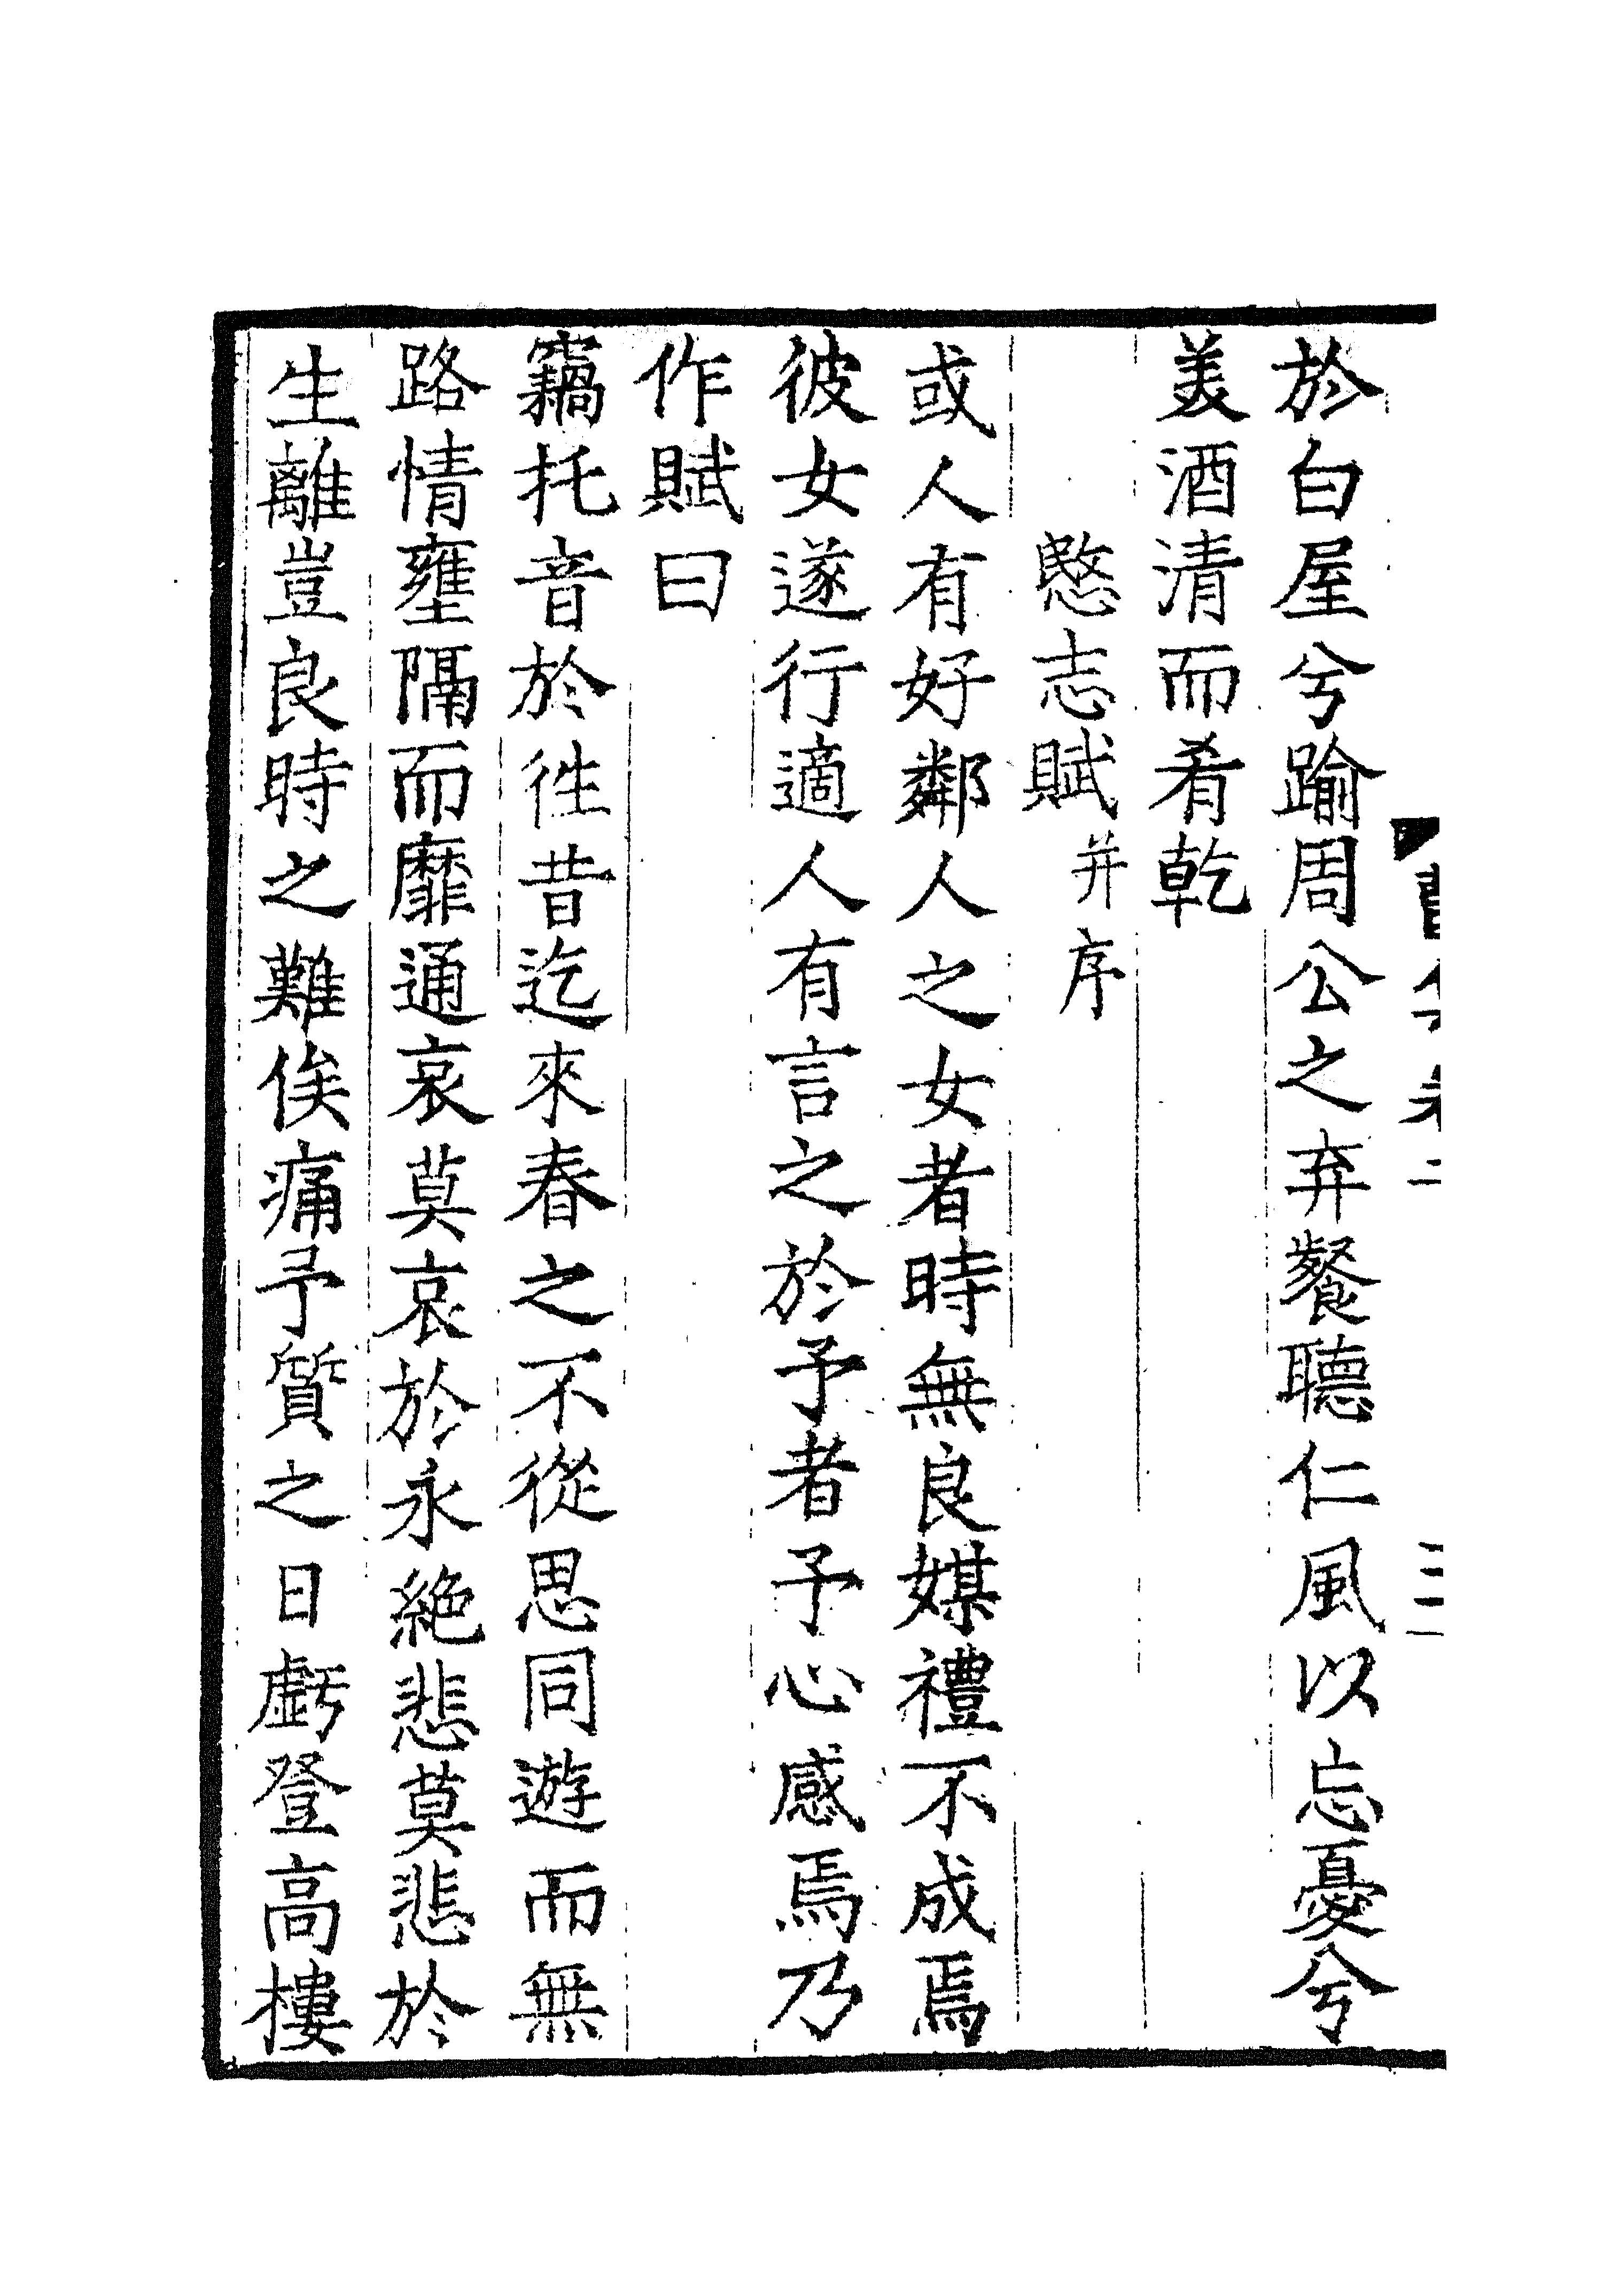 於白屋兮踰周公之弃餐聽仁風以忘憂兮
美酒清而肴乾
愍志賦并序
或人有好鄰人之女者時無良媒禮不成焉
彼女遂行適人有言之於予者予心感焉乃
作賦曰
竊托音於徃昔迄來春之不從思同遊而無
路情壅隔而靡通哀莫哀於永絶悲莫悲於
生離豈良時之難俟痛予質之日虧登高樓